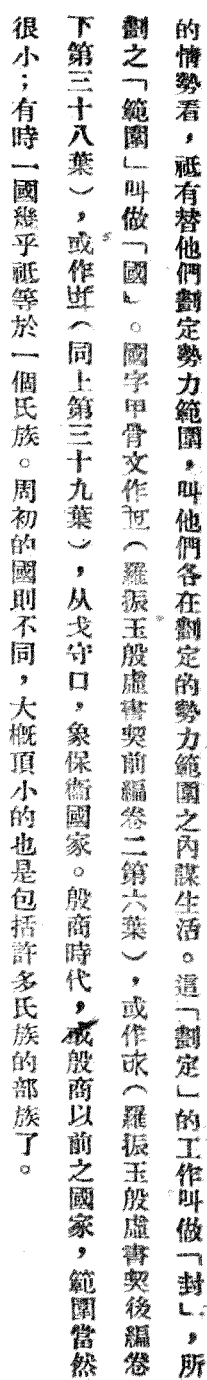 的情勢看，祗有替他們劃定勢力範圍，叫他們各在劃定的勢力範圍之內謀生活。這「劃定」的工作叫做「封」，所
劃之「範圍」叫做「國」。國字甲骨文作（羅振玉殷虛書契前編卷二第六葉），或作（羅振玉殷虛書契後編卷
下第三十八葉），或作（同上第三十九葉），从戈守口，象保衞國家。殷商時代，或殷商以前之國家，範圍當然
很小；有時一國幾乎祗等於一個氏族。周初的國則不同，大概頂小的也是包括許多氏族的部族了。